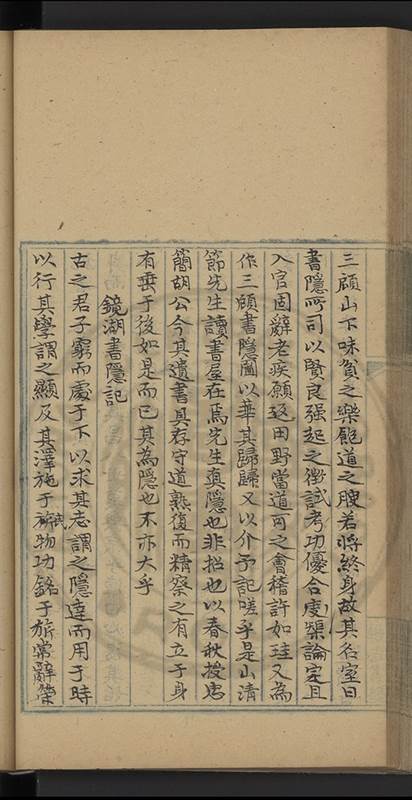 三顧山下味貧之樂飽道之腴若將終身故其名室曰
書隱所司以賢良强起之徵試考功優合度槩論定且
入官固辭老疾願返田野當道可之會稽許如珪又為
作三顧書隱圖以華其歸歸又以介予記嗟乎是山清
節先生讀書屋在焉先生真隱也非招也以春秋授忠
簡胡公今其遺書具存守道熟復而精察之有立于身
有垂于後如是而已其為隱也不亦大乎
鏡湖書隱記
古之君子窮而處于下以求其志謂之隱達而用于時
以行其學謂之顯及其澤施于旂物功銘于旂常辭榮
試